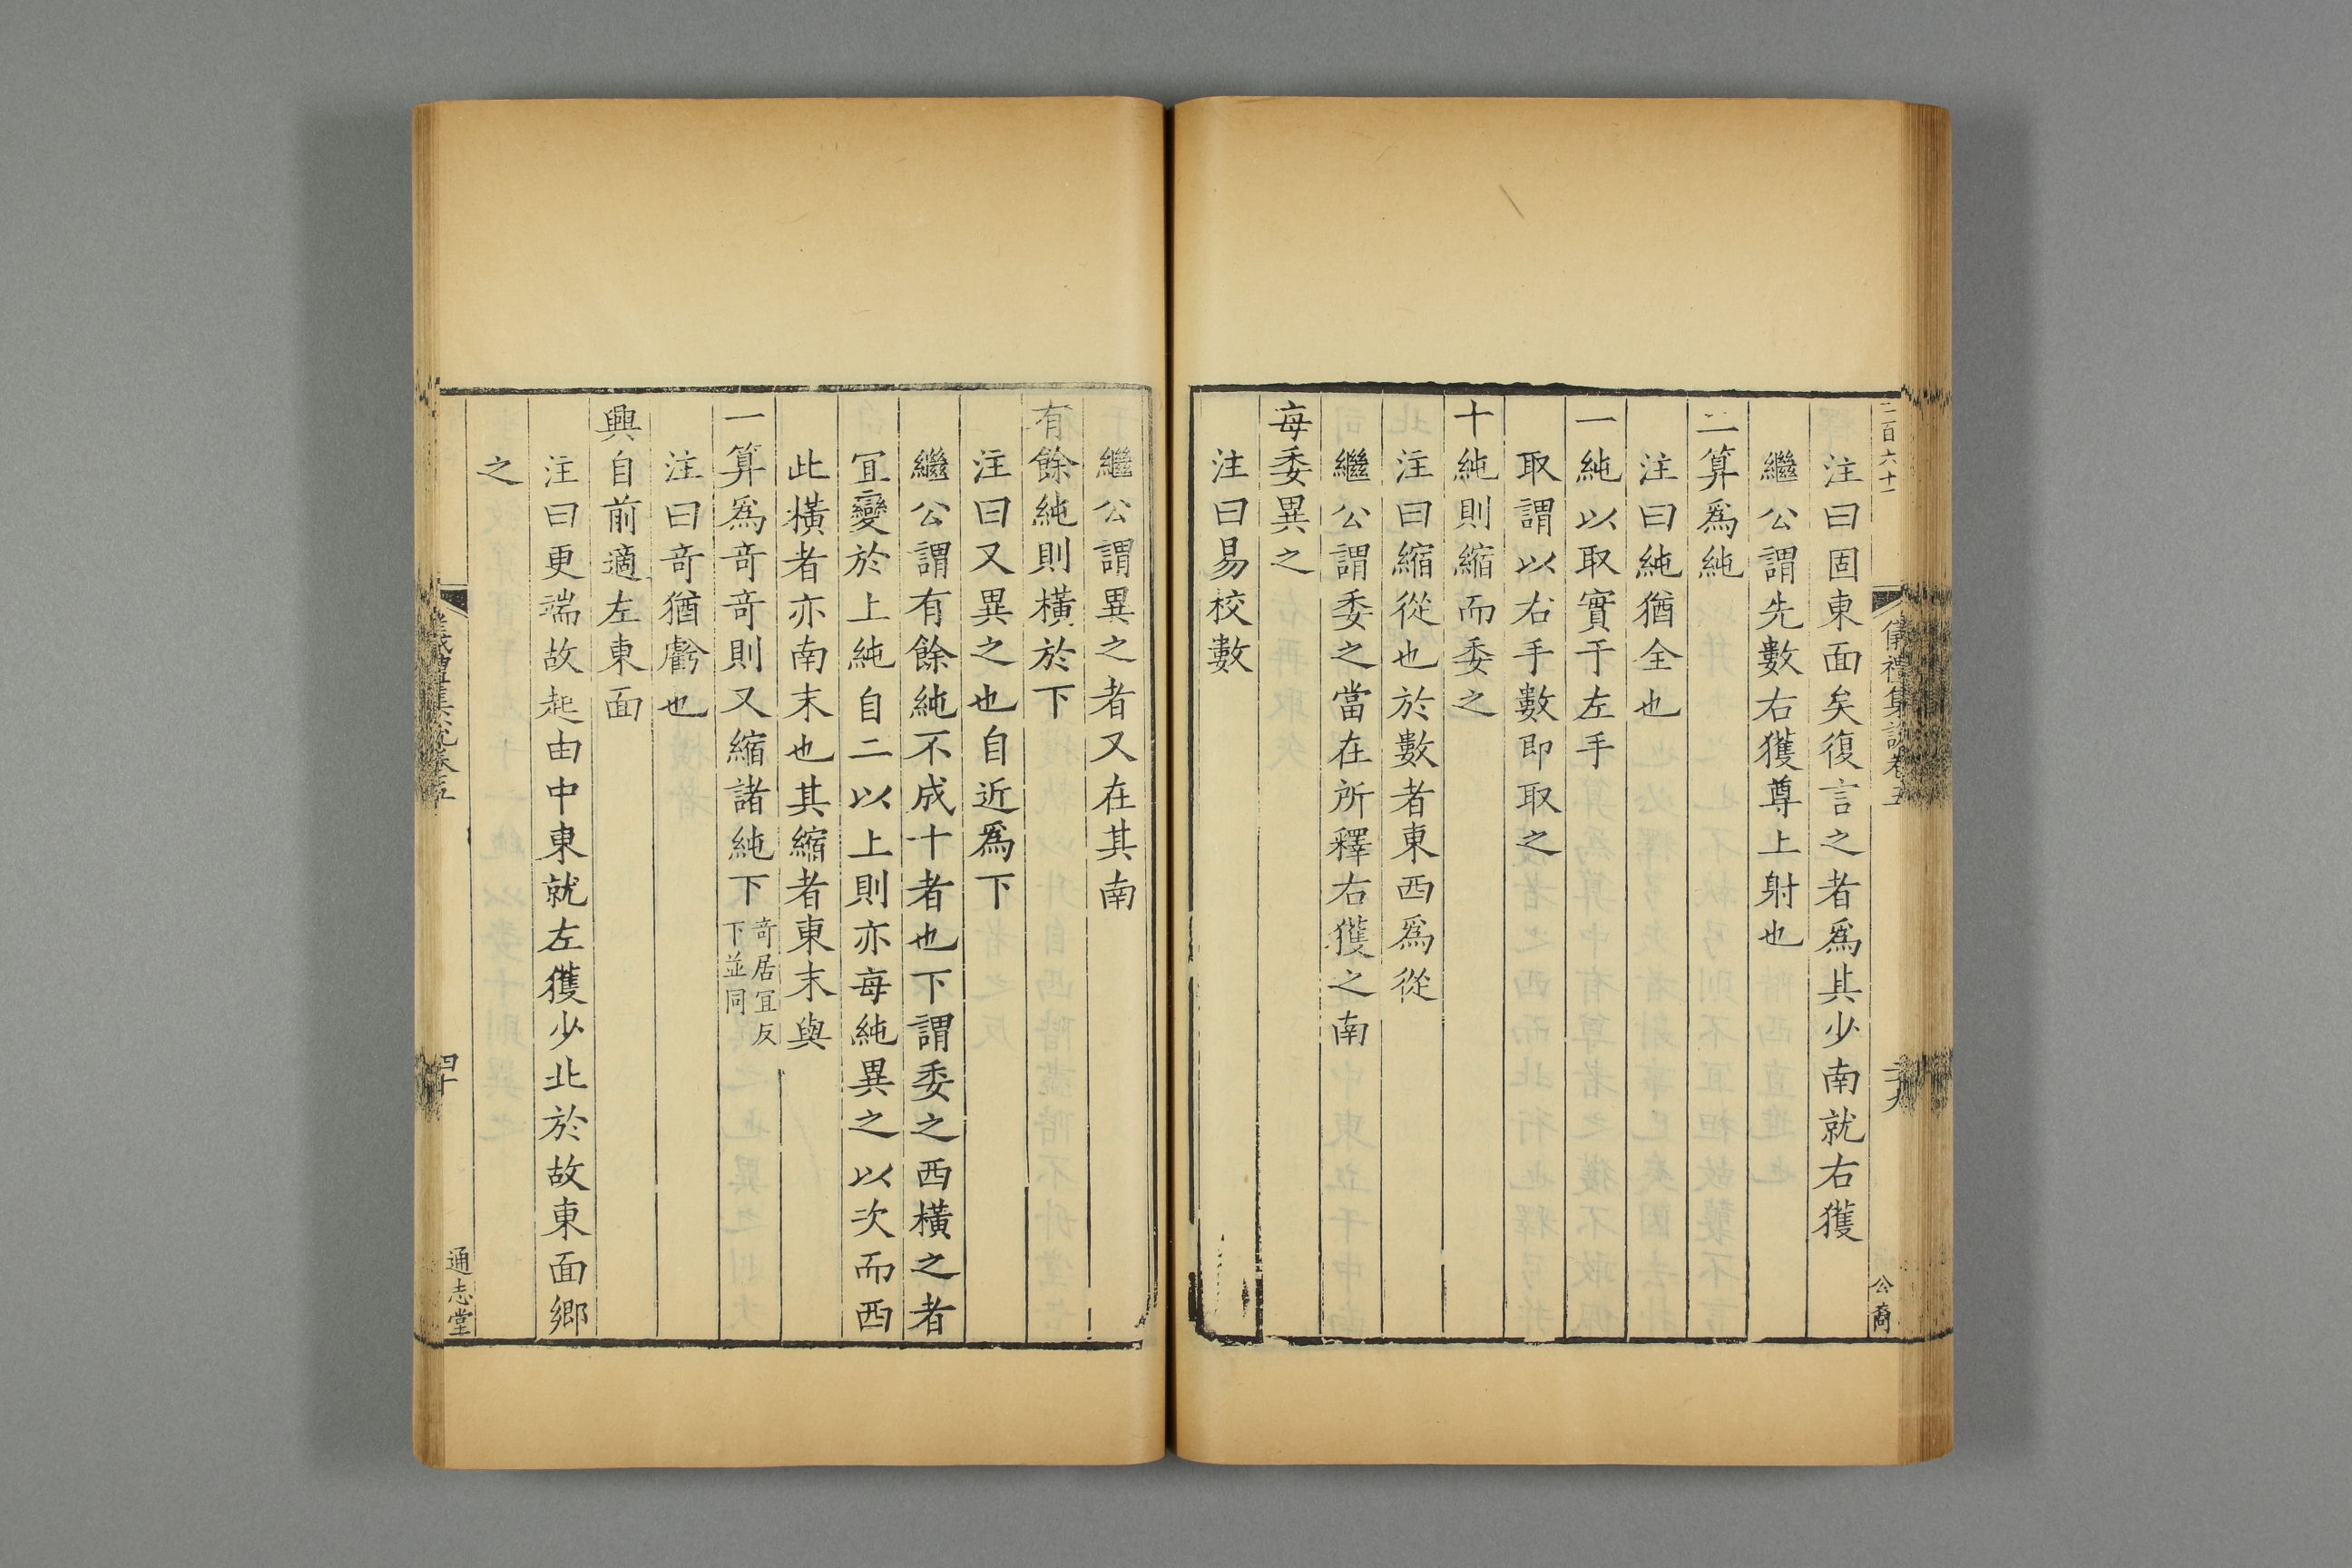 二百六十一
儀禮集說卷五
三十九
公裔
注曰固東面矣復言之者爲其少南就右獲
繼公謂先數右獲尊上射也
二算爲純
注曰純猶全也
一純以取實于左手
取謂以右手數即取之
十純則縮而委之
注曰縮從也於數者東西爲從
繼公謂委之當在所釋右獲之南
每委異之
注曰易校數
繼公謂異之者又在其南
有餘純則橫於下
注曰又異之也自近爲下
繼公謂有餘純不成十者也下謂委之西橫之者
宜變於上純自二以上則亦每純異之以次而西
此橫者亦南末也其縮者東末與
一算爲奇奇則又縮諸純下奇居宜反
下並同
注曰奇猶虧也
興自前適左東面
注曰更端故起由中東就左獲少北於故東面鄉
之
儀禮集說卷五
四十
通志堂